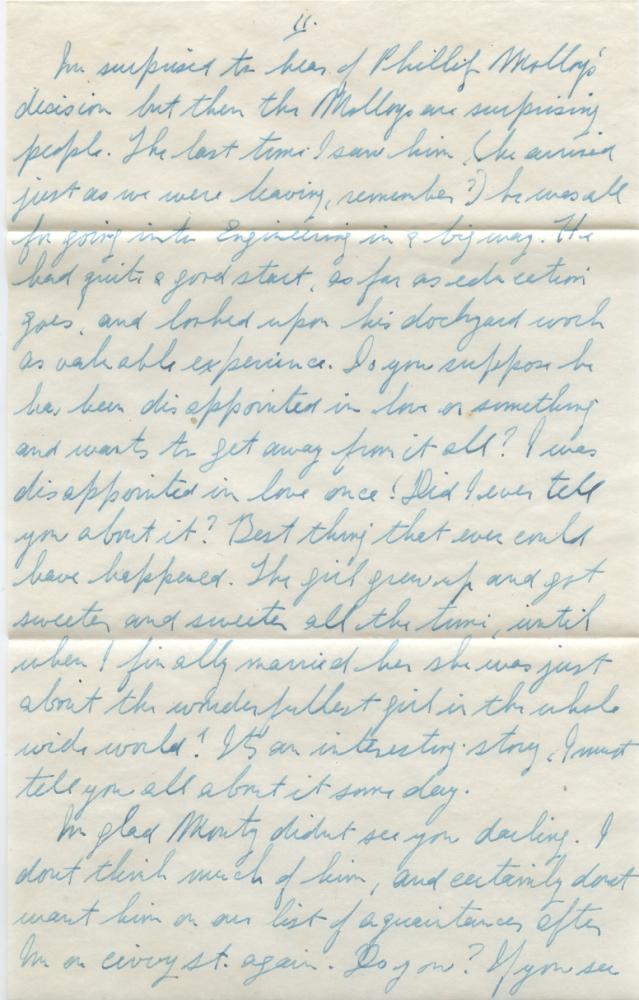 11.
Im surprised to hear of Phillip Molloys'
decision but then the Molloys are surprising
people. The last time I saw him, (he arrived
just as we were leaving, remember?) he was all
for going into Engineering in a big way. He
had quite a good start, as far as education
goes, and looked upon his dockyard work
as valuable experience. Do you suppose he
has been disappointed in love or something
and wants to get away from it all? I was
disappointed in love once! Did I ever tell
you about it? Best thing that ever could
have happened. The girl grew up and got
sweeter and sweeter all the time, until
when I finally married her she was just
about the wonderfullest girl in the whole
wide world! It's an interesting story, I must
tell you all about it some day.
Im glad Monty didnt see you darling. I
dont think much of him, and certainly dont
want him on our list of aquaintances after
Im on civvy st. again. Do you? If you see